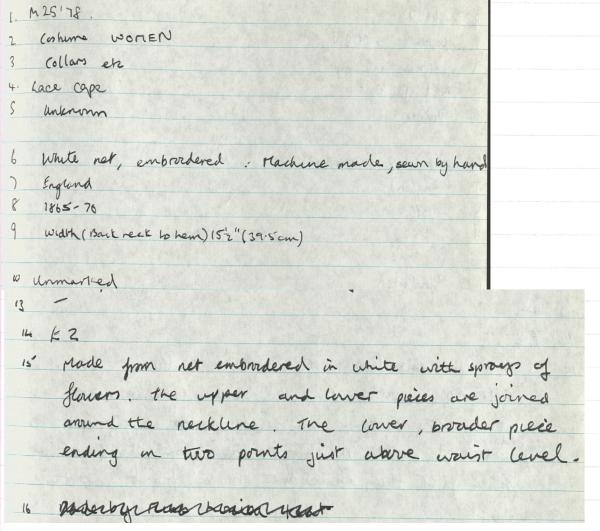 1. M25'78.
2 Costume WOMEN
3 Collars etc
4. Lace cape
5 Unknown
6 White net, embroidered. Machine made, sewn by hand
7 England
8 1865-70
9 Width (Back neck to hem) 15½" (39.5cm)
10 Unmarked
13 –
14 E2
15 Made from net embroidered in white with sprays of
flowers. The upper and lower pieces are joined
around the neckline. The lower, broader piece
ending in two points just above waist level.
16